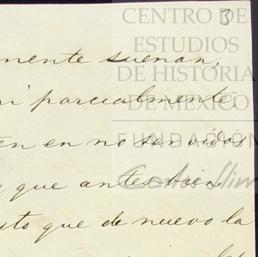 3
CENTRO DE
ESTUDIOS
DE HISTORIA
DE MÉXICO
FUNDACIÓN
Carlos Slim
mente suenan,
ni parcialmente
en en no ser oidos
que antes bien
sto que de nuevo la